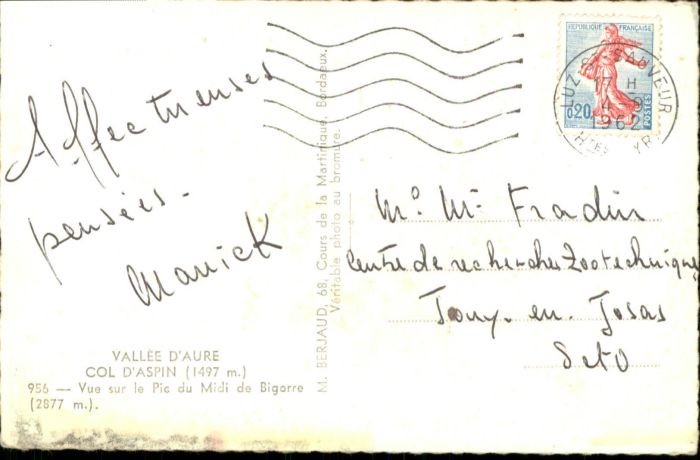 Affectueuses
pensées.
Manick
VALLÉE D'AURE
COL D'ASPIN (1497 m.)
956 — Vue sur le Pic du Midi de Bigorre
(2877 m.).
M. BERJAUD, 68, Cours de la Martinique, Bordeaux.
Véritable photo au bromure.
REPUBLIQUE FRANÇAISE
0,20
POSTES
LUZ ST SAUVEUR
17 H
4 - 8
1962
HTES PYR
Mº Mᵐ Fradin
Centre de recherches Zootechniques
Jouy. en. Josas
S et O